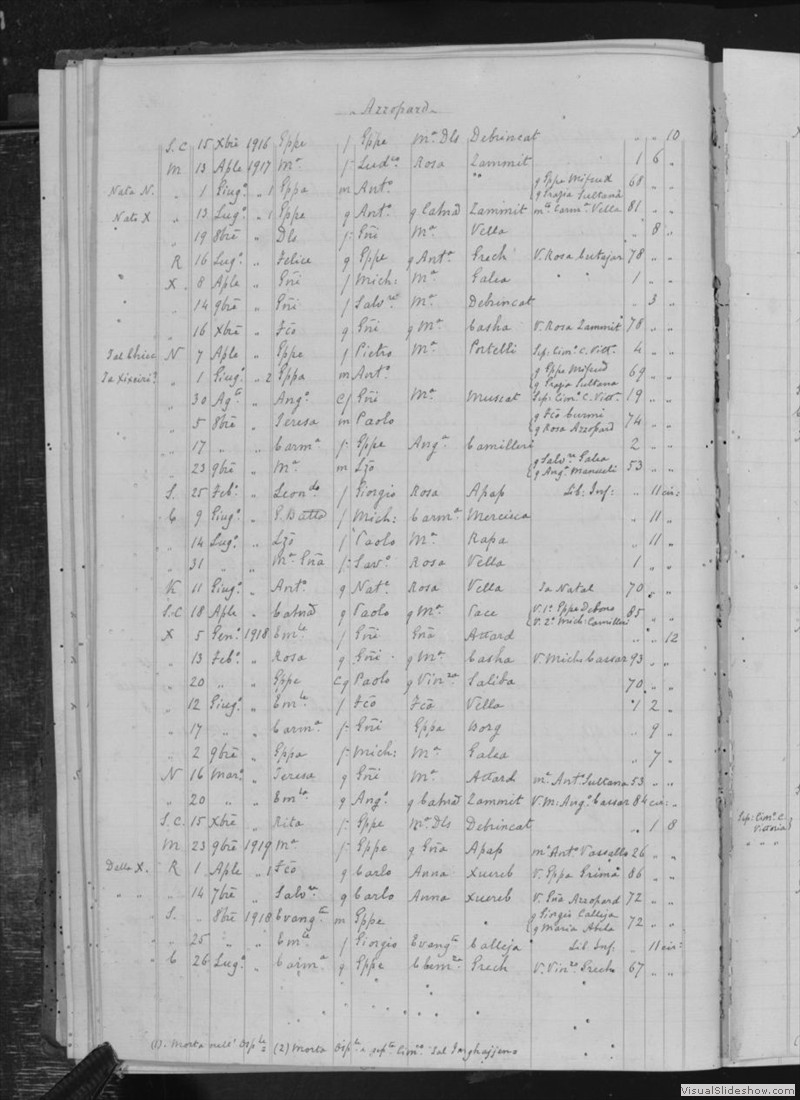 Azzopard
S.C 15 Xbrē 1916 Gppe f Gppe Mª Dls Debrincat " " 10
M 13 Aple 1917 Mª f Lud Rosa Zammit 1 6 "
Nata N. " 1 Giugº " 1 Gppa m Antº " g Gppe Mifsud g Grazia Sultana 68 " "
Nato X " 13 Lugº " 1 Gppe g Antº g Catnª Zammit mto Carmª Vella 81 " "
" 19 8brē " Dls f Gñi Mª Vella " 8 "
R 16 Lugº " Felice g Gppe g Antª Grech V. Rosa Cutajar 78 " "
X 8 Aple " Gñi f Mich: Mª Galea " " 1 " "
" 14 9brē " Gñi f Salvre Mª Debrincat " 3 "
" 16 Xbrē " Fcō g Gñi g Mª Casha V. Rosa Zammit 78 " "
N 7 Aple " Gppe f Pietro Mª Portelli Sep: Cimº C. Vittª 4 " "
" 1 Giugº " 2 Gppa m Antº g Gppe Mifsud g Grazia Sultana 69 " "
" 30 Agto " Angº cf Gñi Mª Muscat Sep: Cimº C. Vittª 19 " "
" 5 8brē " Teresa m Paolo g Fcō Curmi g Rosa Azzopard 74 " "
" 17 " " Carmª f Gppe Angª Camilleri 2 " "
" 23 9brē " Mª m Lzō g Salvre Galea g Angª Manueli 53 " "
S. 25 Febº " Leondº f Giorgio Rosa Apap Lib: Inf: " 11 cir:
C 9 Giugº " G. Batta f Mich: Carmª Mercieca " 11 "
" 14 Lugº " Lzō f Paolo Mª Rapa " 11 "
" 31 " " Mª Gñā f Savº Rosa Vella 1 " "
K 11 Giugº " Antº g Natº Rosa Vella Ta Natal 70 " "
S.C 18 Aple " Catnª g Paolo g Mª Pace V. 1º Gppe Debono V. 2º Mich: Camilleri 85 " "
X 5 Genº 1918 Emle f Gñi Gñā Attard " " 12
" 13 Febº " Rosa g Gñi g Mª Casha V. Mich: Cassar 93 " "
" 20 " " Gppe cg Paolo g Vinza Saliba 70 " "
" 12 Giugº " Emle f Fcō Fcā Vella 1 2 "
" 17 " " Carmª f Gñi Gppa Borg " 9 "
" 2 9brē " Gppa f Mich: Mª Galea " 7 "
N 16 Marº " Teresa g Gñi Mª Attard mª Antº Sultana 53 " "
" 20 " " Emla g Angº g Catnª Zammit V. M: Angº Cassar 84 cir: "
S.C. 15 Xbrē " Rita f Gppe Mª Dls Debrincat " 1 8
M 23 9brē 1919 Mª f Gppe g Gñā Apap mª Antº Vassallo 26 " "
Dalla X. R 1 Aple " 1 Fcō g Carlo Anna Xuereb V. Gppa Grima 86 " "
" " " 14 7brē " Salvre g Carlo Anna Xuereb V. Gñā Azzopard 72 " "
S. " 8brē 1918 Evangta m Gppe " g Giorgio Calleja g Maria Abela 72 " "
" 25 " " Emle f Giorgio Evangta Calleja Lib Inf. " 11 cir:
C 26 Lugº " Carmª g Gppe Clemza Grech V. Vinzo Grech 67 " "
(1). Morta nell' Osple (2) Morta Osple
Sep: Cimº C. Vittoria
VisualSlideshow.com